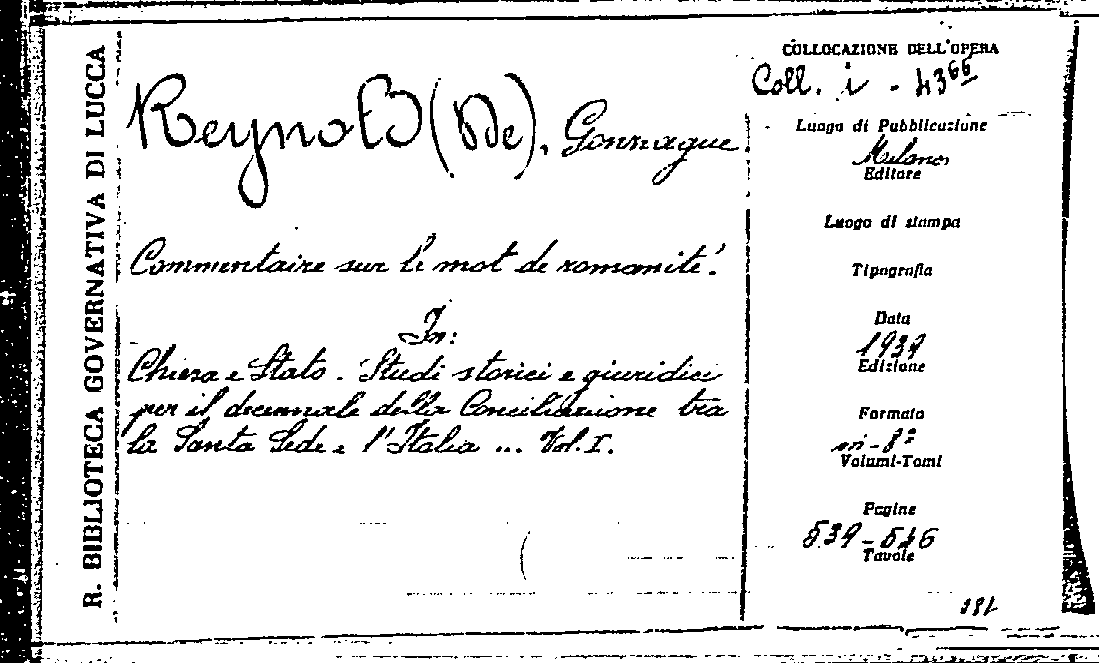 R. BIBLIOTECA GOVERNATIVA DI LUCCA
Reynold (De), Gonzague
Commentaire sur le mot de romanité.
In:
Chiesa e Stato. Studi storici e giuridici
per il decennale della Conciliazione tra
la Santa Sede e l'Italia ... Vol. I.
COLLOCAZIONE DELL'OPERA
Coll. i - 4366
Luogo di Pubblicazione
Milano
Editore
Luogo di stampa
Tipografia
Data
1939
Edizione
Formato
in-8°
Volumi-Tomi
Pagine
539-546
Tavole